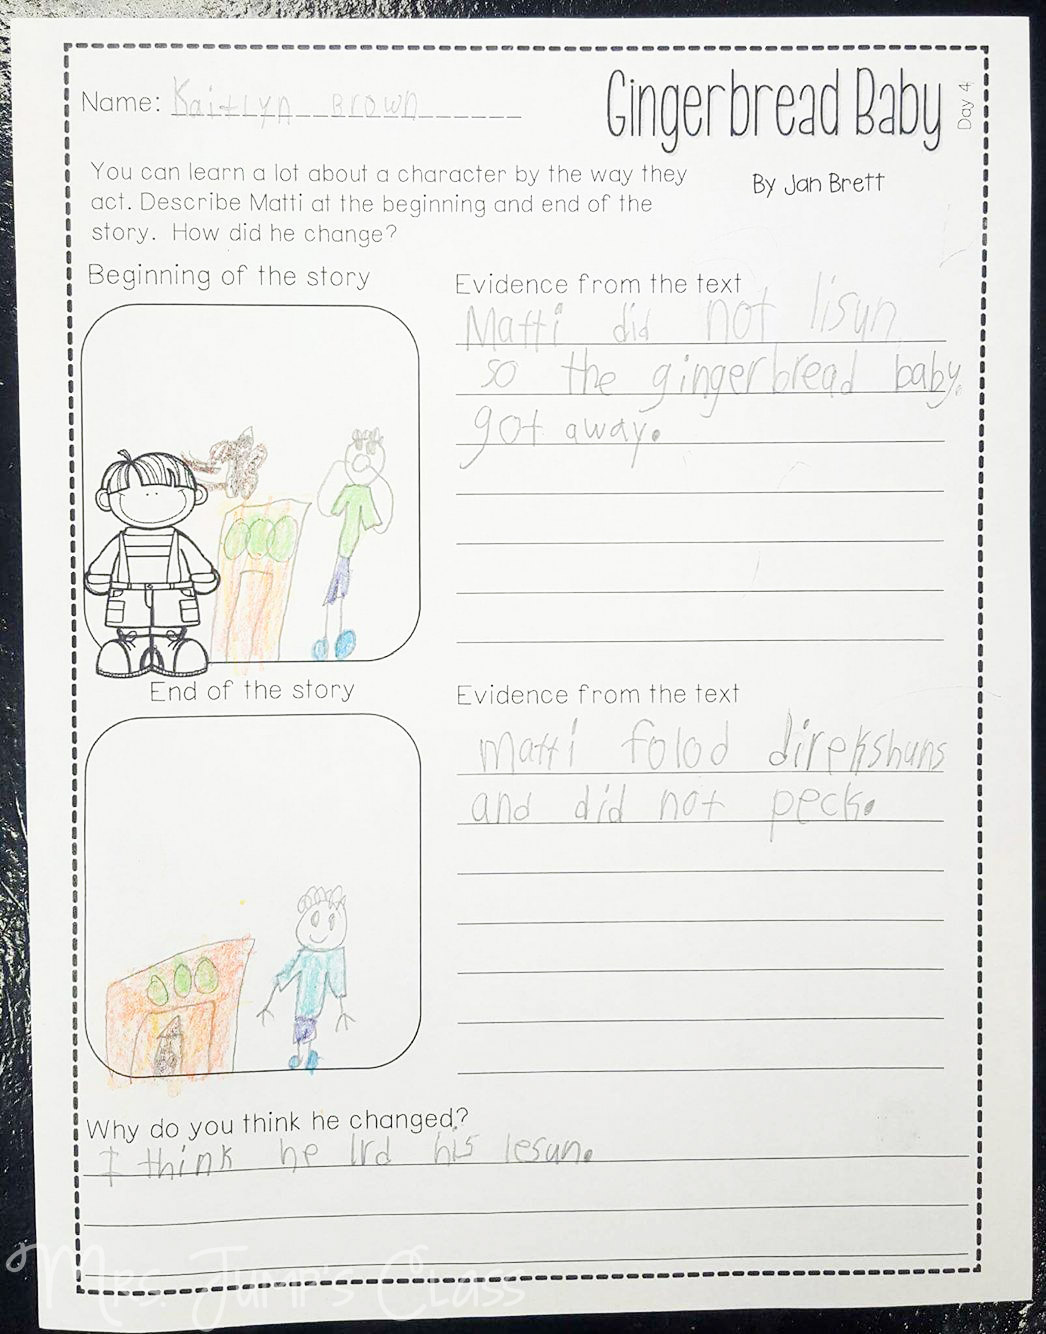 Name: Kaitlyn Brown
Gingerbread Baby
Day 4
By Jan Brett
You can learn a lot about a character by the way they
act. Describe Matti at the beginning and end of the
story. How did he change?
Beginning of the story
Evidence from the text
Matti did not lisun
so the gingerbread baby.
got away.
End of the story
Evidence from the text
matti folod direkshuns
and did not peck.
Why do you think he changed?
I think he lrd his lesun.
Mrs. Jump's Class